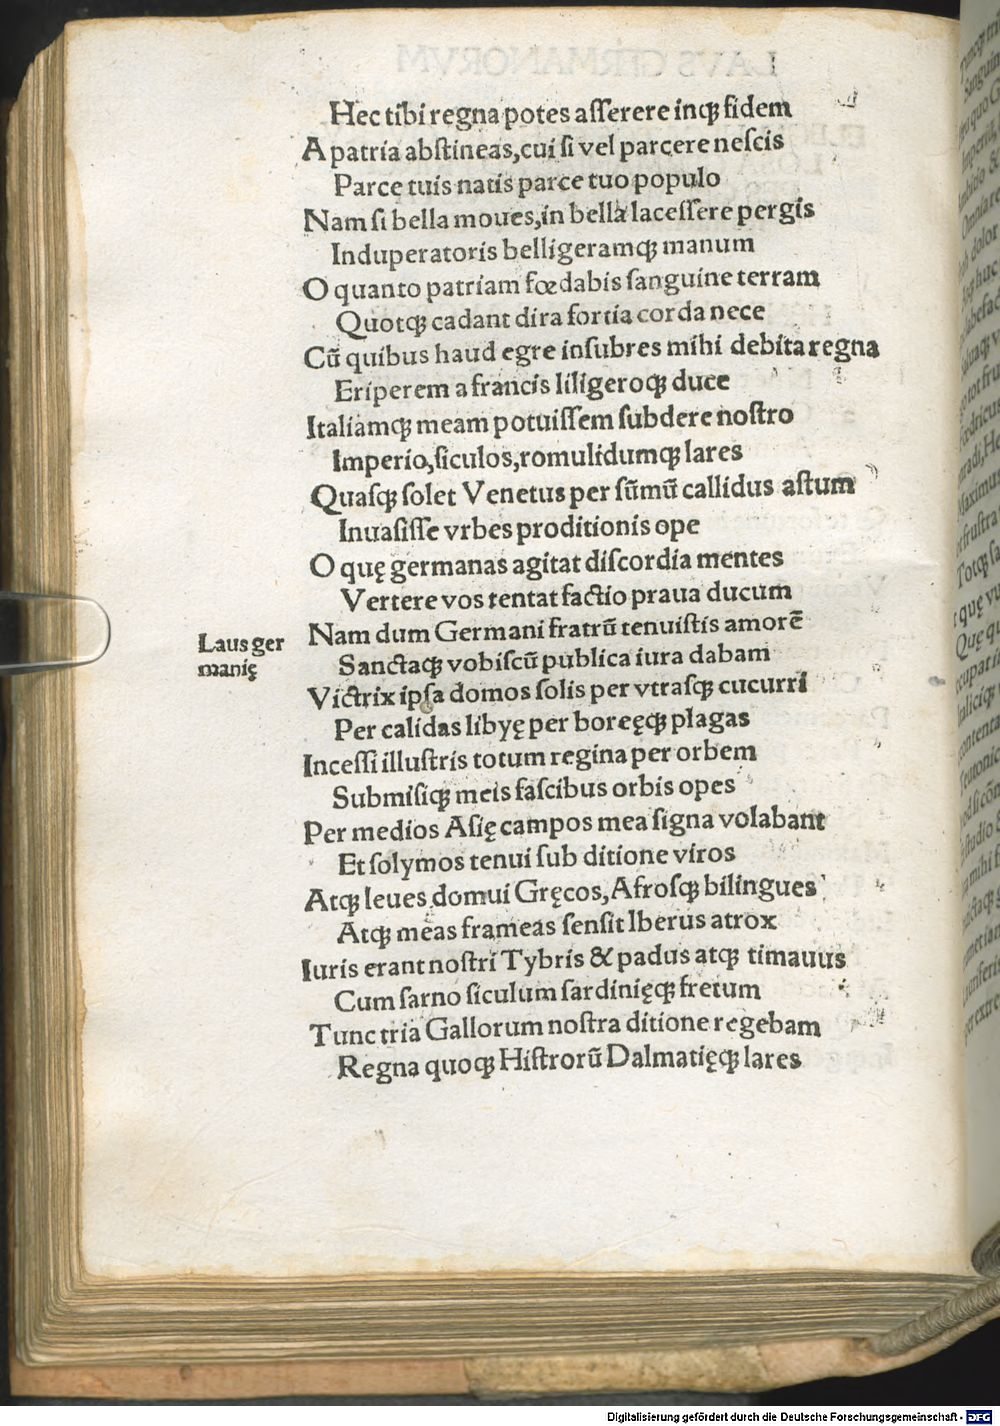 Hec tibi regna potes aſſerere inqꝫ fidem
A patria abſtineas,cui ſi vel parcere neſcis
Parce tuis natis parce tuo populo
Nam ſi bella moues,in bella laceſſere pergis
Induperatoris belligeramqꝫ manum
O quanto patriam fœdabis ſanguine terram
Quotqꝫ cadant dira fortia corda nece
Cū quibus haud egre inſubres mihi debita regna
Eriperem a francis liligeroqꝫ duce
Italiamqꝫ meam potuiſſem ſubdere noſtro
Imperio,ſiculos,romulidumqꝫ lares
Quaſqꝫ ſolet Venetus per ſūmū callidus aſtum
Inuaſiſſe vrbes proditionis ope
O quę germanas agitat diſcordia mentes
Vertere vos tentat factio praua ducum
Laus ger
manię
Nam dum Germani fratrū tenuiſtis amorē
Sanctaqꝫ vobiſcū publica iura dabam
Victrix ipſa domos ſolis per vtraſqꝫ cucurri
Per calidas libyę per boreęqꝫ plagas
Inceſſi illuſtris totum regina per orbem
Submiſiqꝫ meis faſcibus orbis opes
Per medios Aſię campos mea ſigna volabant
Et ſolymos tenui ſub ditione viros
Atqꝫ leues domui Gręcos,Afroſqꝫ bilingues
Atqꝫ meas frameas ſenſit Iberus atrox
Iuris erant noſtri Tybris & padus atqꝫ timauus
Cum ſarno ſiculum ſardinięqꝫ fretum
Tunc tria Gallorum noſtra ditione regebam
Regna quoqꝫ Hiſtrorū Dalmatięqꝫ lares
Digitalisierung gefördert durch die Deutsche Forschungsgemeinschaft - DFG